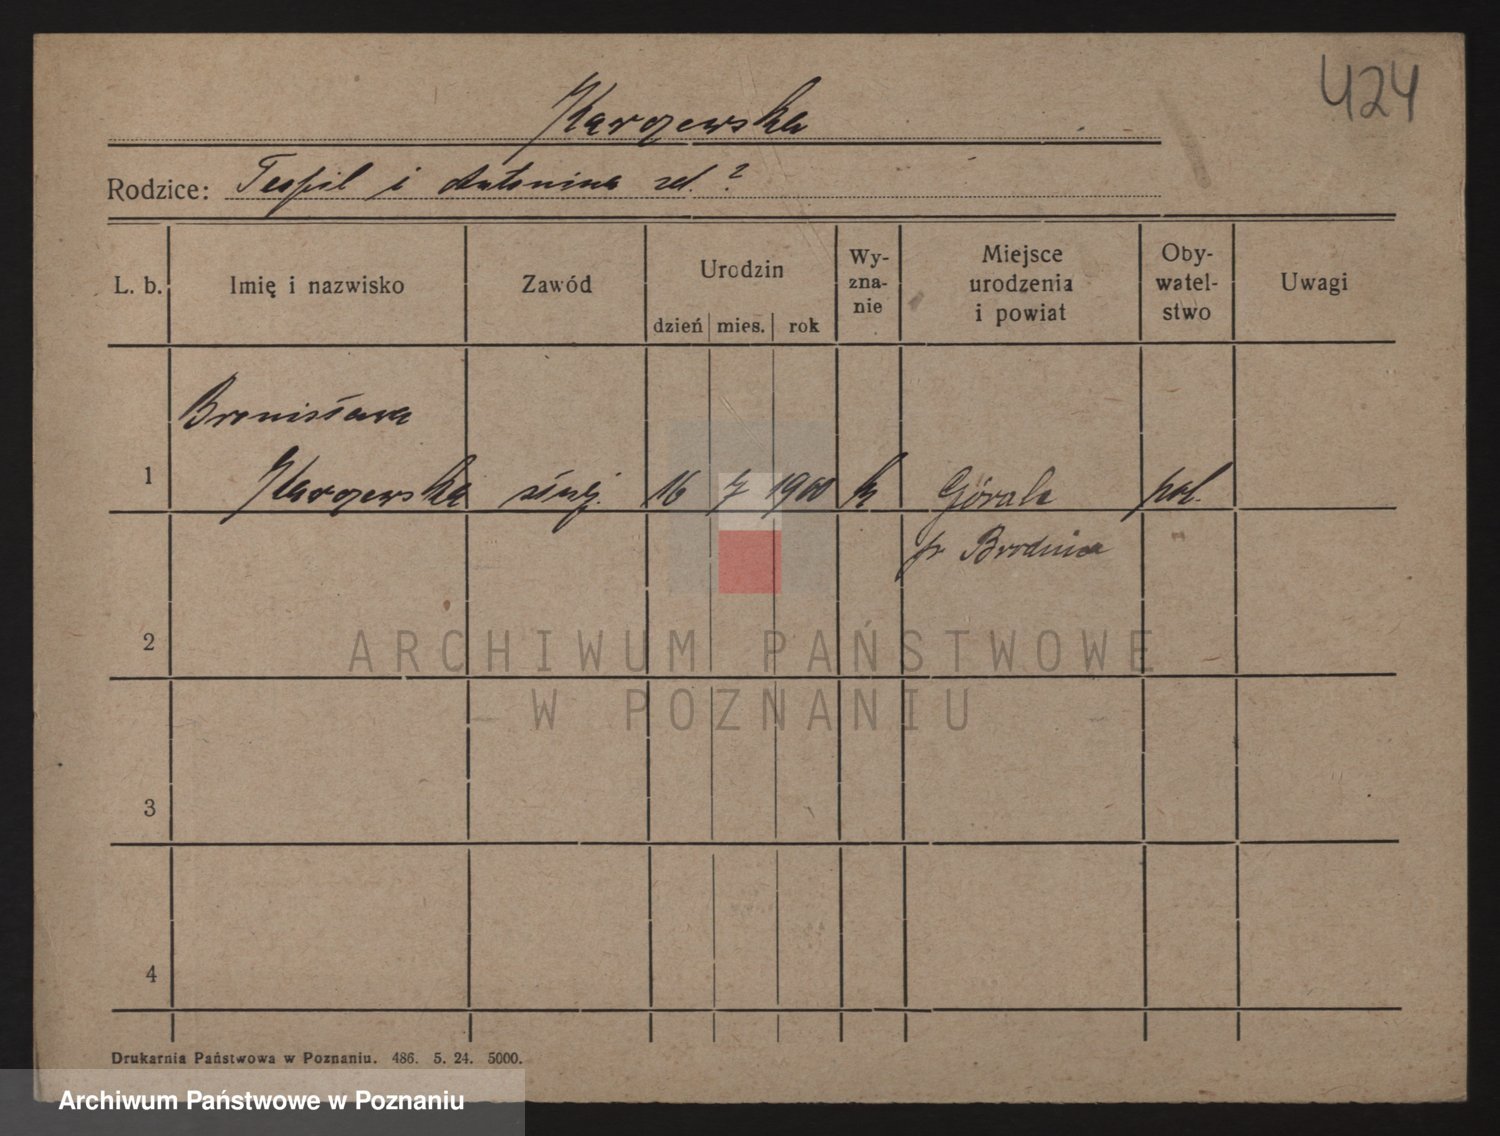 424
Karczewska
Rodzice: Teofil i Antonina zd. ?
L. b. Imię i nazwisko Zawód Urodzin dzień mies. rok Wy-zna-nie Miejsce urodzenia i powiat Oby-watel-stwo Uwagi
Bronisława
1 Karczewska służ. 16 7 1900 k Górale pol.
p. Brodnica
2
ARCHIWUM PAŃSTWOWE
W POZNANIU
3
4
Drukarnia Państwowa w Poznaniu. 486. 5. 24. 5000.
Archiwum Państwowe w Poznaniu